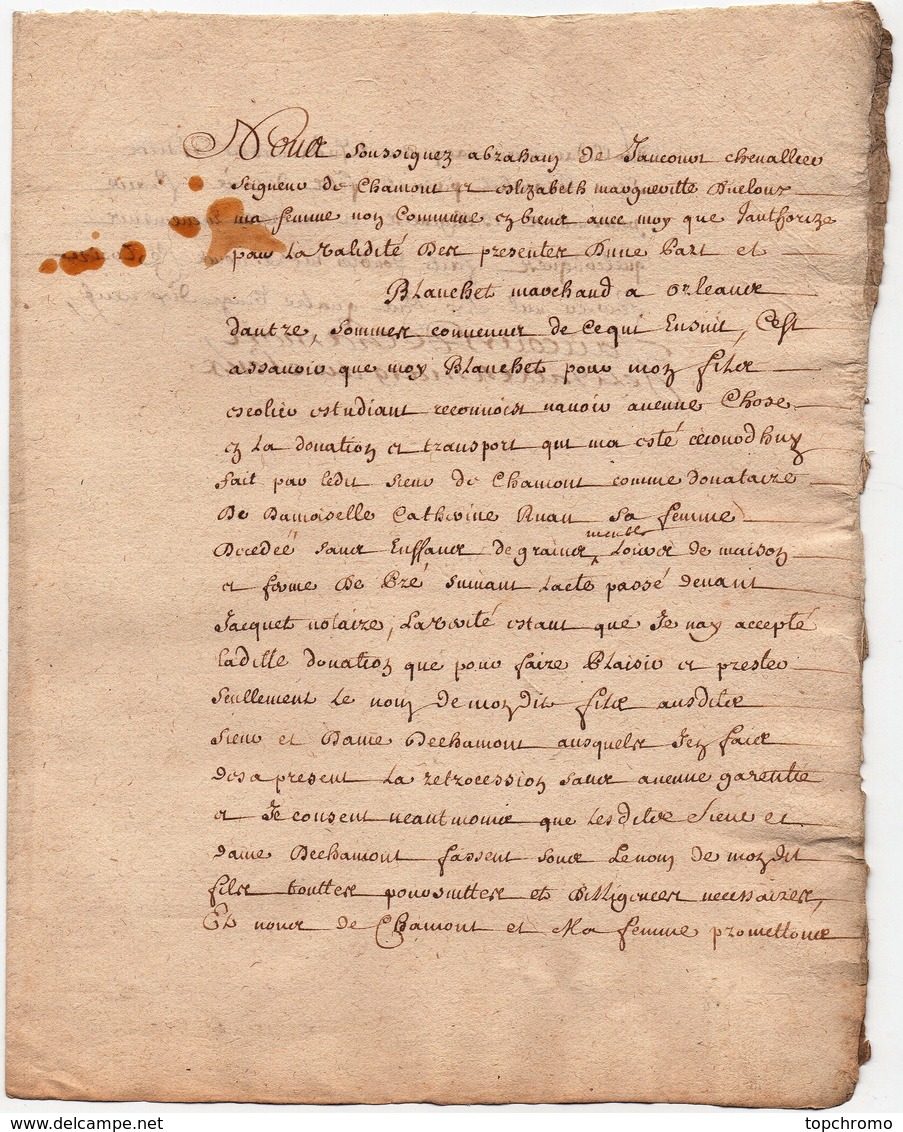 Nous soussignez abraham de Jaucourt chevallier
Seigneur de Chamont et Elizabeth margueritte
ma femme non Commune en biens avec moy que Jauthorize
pour La validité Des presentes Dune part et
Blanchet marchand a orleans
dautre, sommes convenues de Cequi Ensuit, C'est
assavoir que moy Blanchet pour mon fils
escolier estudiant reconnois navoir aucune Chose
en La donation et transport qui ma esté cejourdhuy
fait par ledit sieur de Chamont comme donataire
De Damoiselle Catherine Ruau sa femme
Decedée sans Enffans de grains meubles Loiers de maison
et ferme De Pré suivant Lacte passé devant
Jacquet notaire, La verité estant que Je nay accepté
laditte donation que pour faire Plaisir et prester
seullement Le nom de mondit fils ausdits
sieur et Dame Dechamont ausquels Jen fais
des a present La retrocession sans aucune garentie
et Je consent neantmoins que Lesdits sieur et
dame Dechamont fassent sous Lenom de mondit
fils touttes poursuittes et Dilligences necessaires,
Et nous de Chamont et Ma femme promettons
topchromo